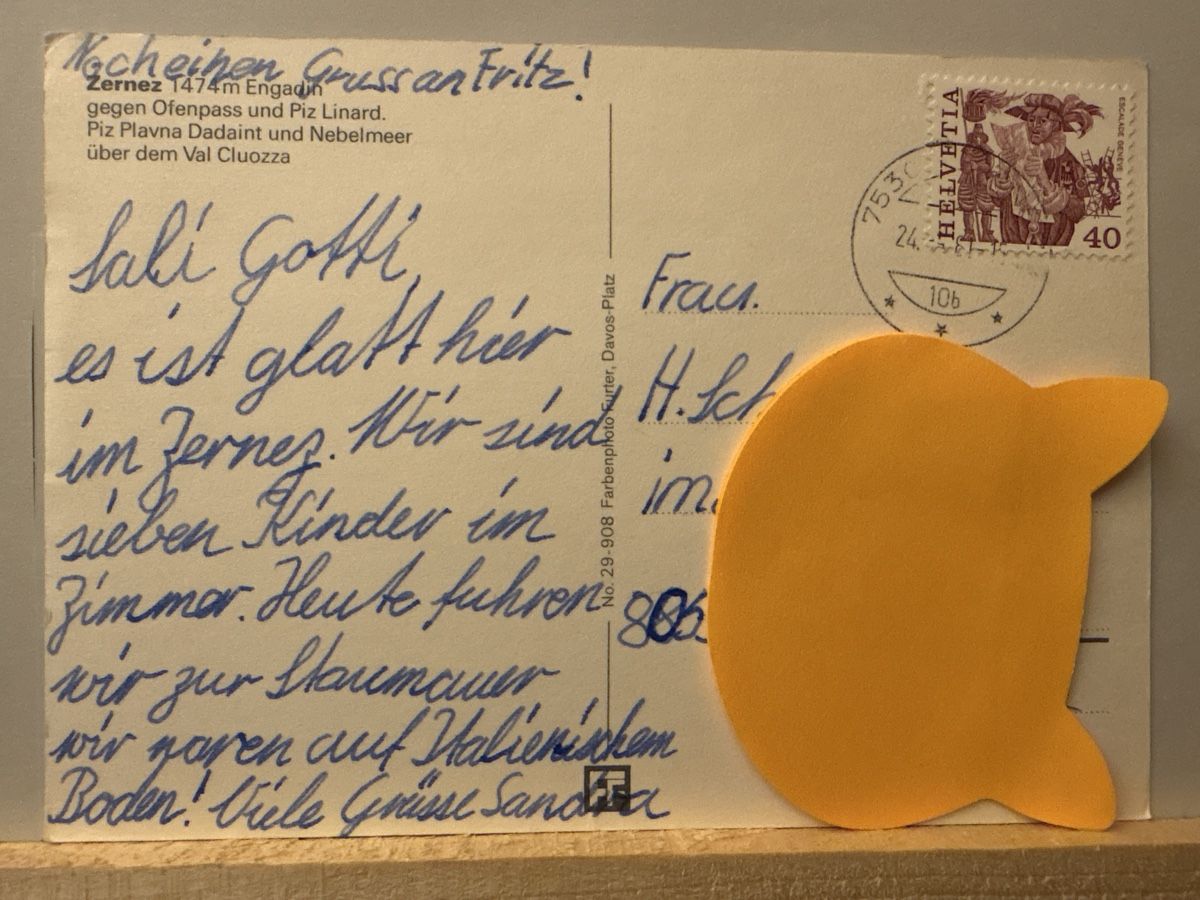 Noch einen Gruss an Fritz!
Zernez 1474m Engadin
gegen Ofenpass und Piz Linard.
Piz Plavna Dadaint und Nebelmeer
über dem Val Cluozza
Sali Gotti,
es ist glatt hier
im Zernez. Wir sind
sieben Kinder im
Zimmer. Heute fuhren
wir zur Staumauer
wir waren auf Italienischem
Boden! Viele Grüsse Sandra
No. 29-908 Farbenphoto Furter, Davos-Platz
HELVETIA
ESCALADE GENÈVE
40
7530
24.
106
Frau.
H. Sch
im